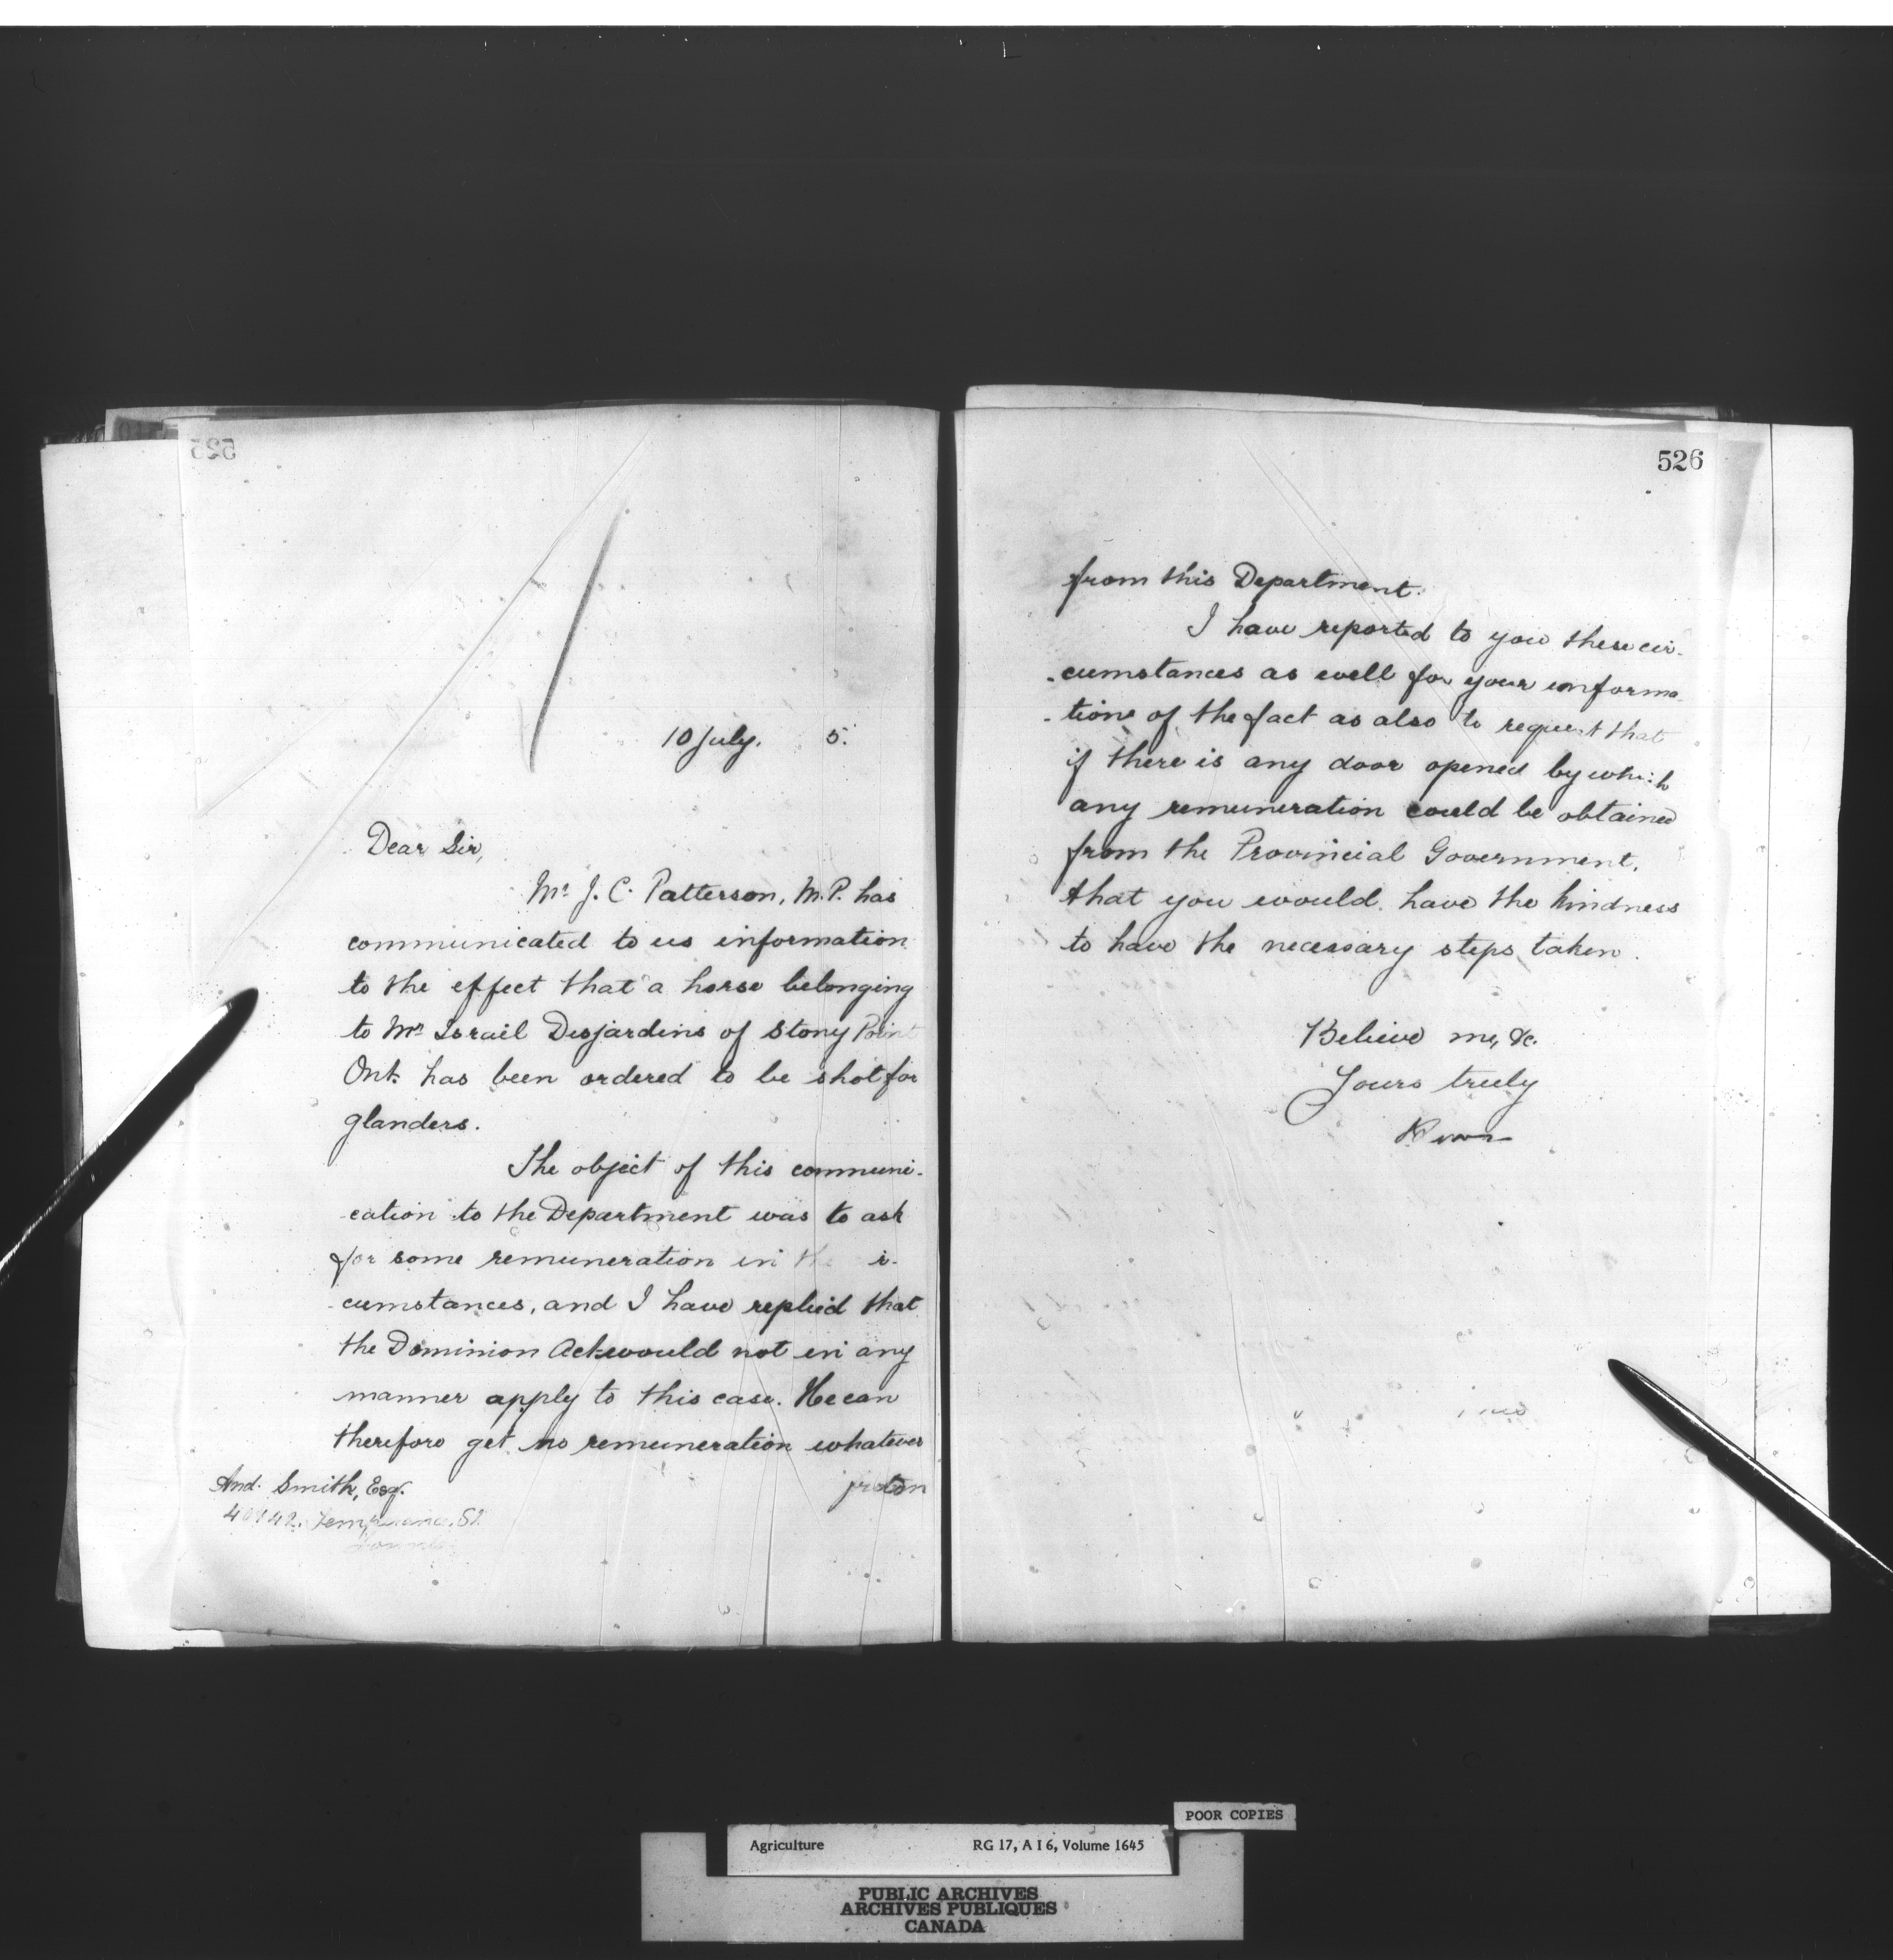 525
10 July. 5.
Dear Sir,
Mr. J. C. Patterson, M.P. has
communicated to us information
to the effect that a horse belonging
to Mr Israil Desjardins of Stony Point
Ont. has been ordered to be shot for
glanders.
The object of this communi-
cation to the Department was to ask
for some remuneration in the
cumstances, and I have replied that
the Dominion Act would not in any
manner apply to this case. He can
therefore get no remuneration whatever
And. Smith, Esq.
Temperance. St.
526
from this Department.
I have reported to you these cir-
-cumstances as well for your informa
-tion of the fact as also to request that
if there is any door opened by which
any remuneration could be obtained
from the Provincial Government,
that you would have the kindness
to have the necessary steps taken.
Believe me, &c.
Yours truly
POOR COPIES
Agriculture RG 17, A I 6, Volume 1645
PUBLIC ARCHIVES
ARCHIVES PUBLIQUES
CANADA